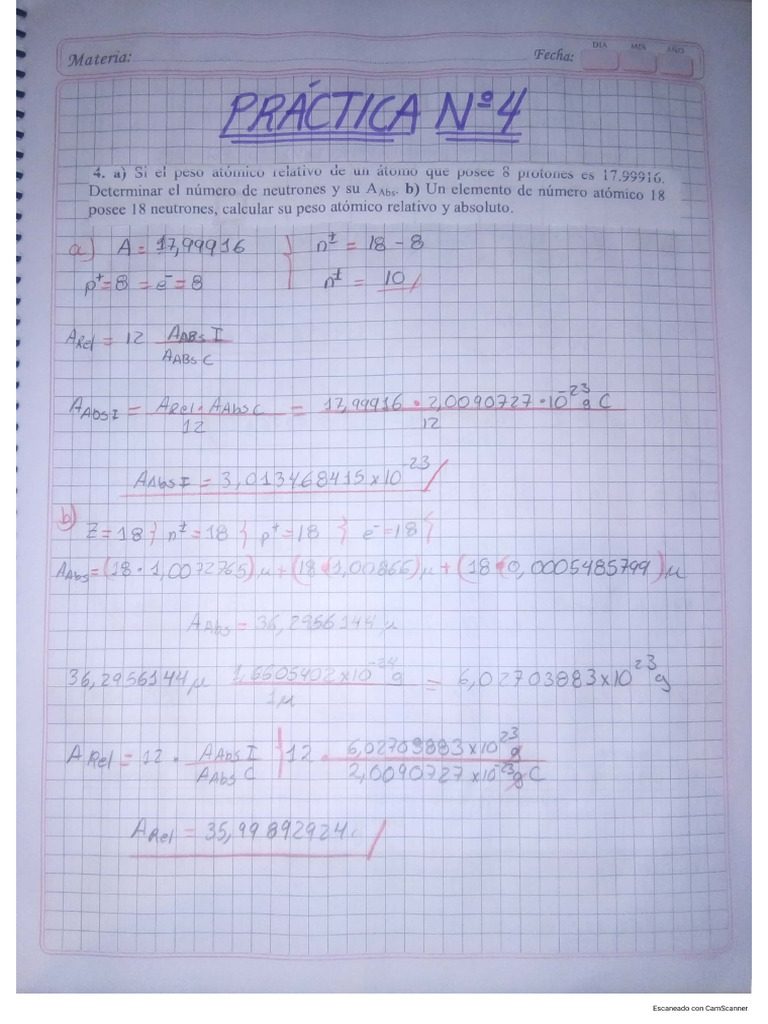 Materia:
Fecha: DIA MES AÑO
PRÁCTICA Nº 4
4. a) Si el peso atómico relativo de un átomo que posee 8 protones es 17.99916.
Determinar el número de neutrones y su A Abs. b) Un elemento de número atómico 18
posee 18 neutrones, calcular su peso atómico relativo y absoluto.
a) A = 17,99916 } n± = 18 - 8
p+ = 8 = e- = 8 n± = 10
ARel = 12 AABS I / AABS C
AAbs I = ARel · AAbs C / 12 = 17,99916 · 2,0090727 · 10^-23 g C / 12
AAbs I = 3,013468415 x 10^-23
b) Z = 18 } n± = 18 { p+ = 18 } e- = 18 {
AAbs = (18 · 1,0072765) μ + (18 · 1,00866) μ + (18 · 0,0005485799) μ
AAbs = 36,2956144 μ
36,2956144 μ 1,6605402 x 10^-24 g / 1 μ = 6,02703883 x 10^23 g
ARel = 12 · AAbs I / AAbs C } 12 · 6,02703883 x 10^23 g / 2,0090727 x 10^-23 g C
ARel = 35,99892924
Escaneado con CamScanner